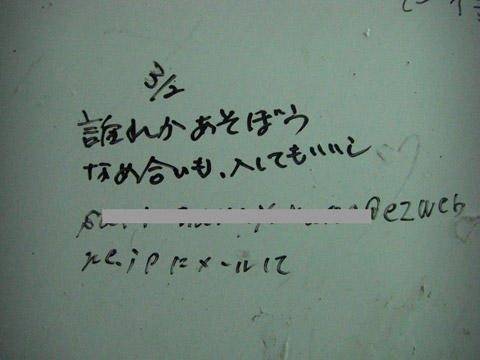 3/2
誰れかあそぼう
なめ合いも、入してもいいし
@ezweb
ne.jpにメールして